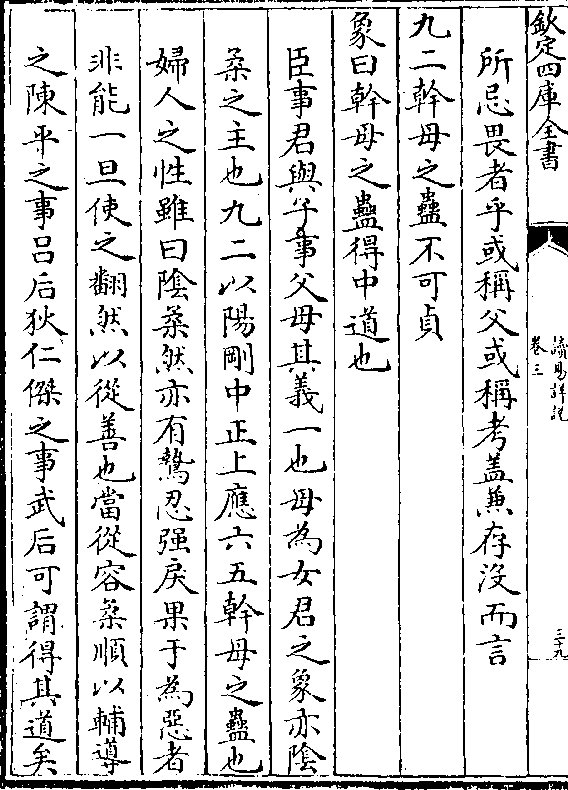 欽定四庫全書
讀易詳說
卷三
三十九
所忌畏者乎或稱父或稱考蓋兼存沒而言
九二幹母之蠱不可貞
象曰幹母之蠱得中道也
臣事君與子事父母其義一也母為女君之象亦陰
柔之主也九二以陽剛中正上應六五幹母之蠱也
婦人之性雖曰陰柔然亦有鷙忍强戾果于為惡者
非能一旦使之翻然以從善也當從容柔順以輔導
之陳平之事吕后狄仁傑之事武后可謂得其道矣